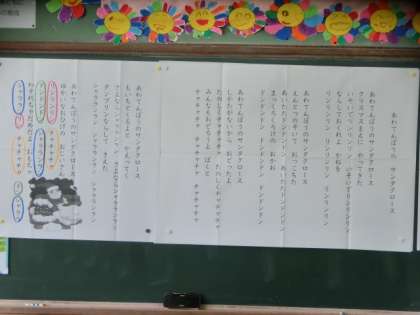 あわてんぼうのサンタクロース
クリスマスまえに やってきた
いそいでリンリンリン いそいでリンリンリン
ならしておくれよ かねを
リンリンリン リンリンリン リンリンリン
あわてんぼうのサンタクロース
えんとつのぞいて おっこちた
あいたたドンドンドン あいたたドンドンドン
まっくろくろけの おかお
ドンドンドン ドンドンドン ドンドンドン
あわてんぼうのサンタクロース
しかたがないから おどったよ
たのしくチャチャチャ たのしくチャチャチャ
みんなもおどろよ ぼくと
チャチャチャ チャチャチャ チャチャチャ
あわてんぼうのサンタクロース
もいちどくるよと かえってく
さよならシャララン さよならシャララン
タンブリンならして きえた
シャララン シャララン シャララン
あわてんぼうのサンタクロース
ゆかいなおひげの おじいさん
リンリンリン チャチャチャ
ドンドンドン シャラララン
わすれちゃだめだよ おもちゃ
シャララン リン チャ ドン シャララン